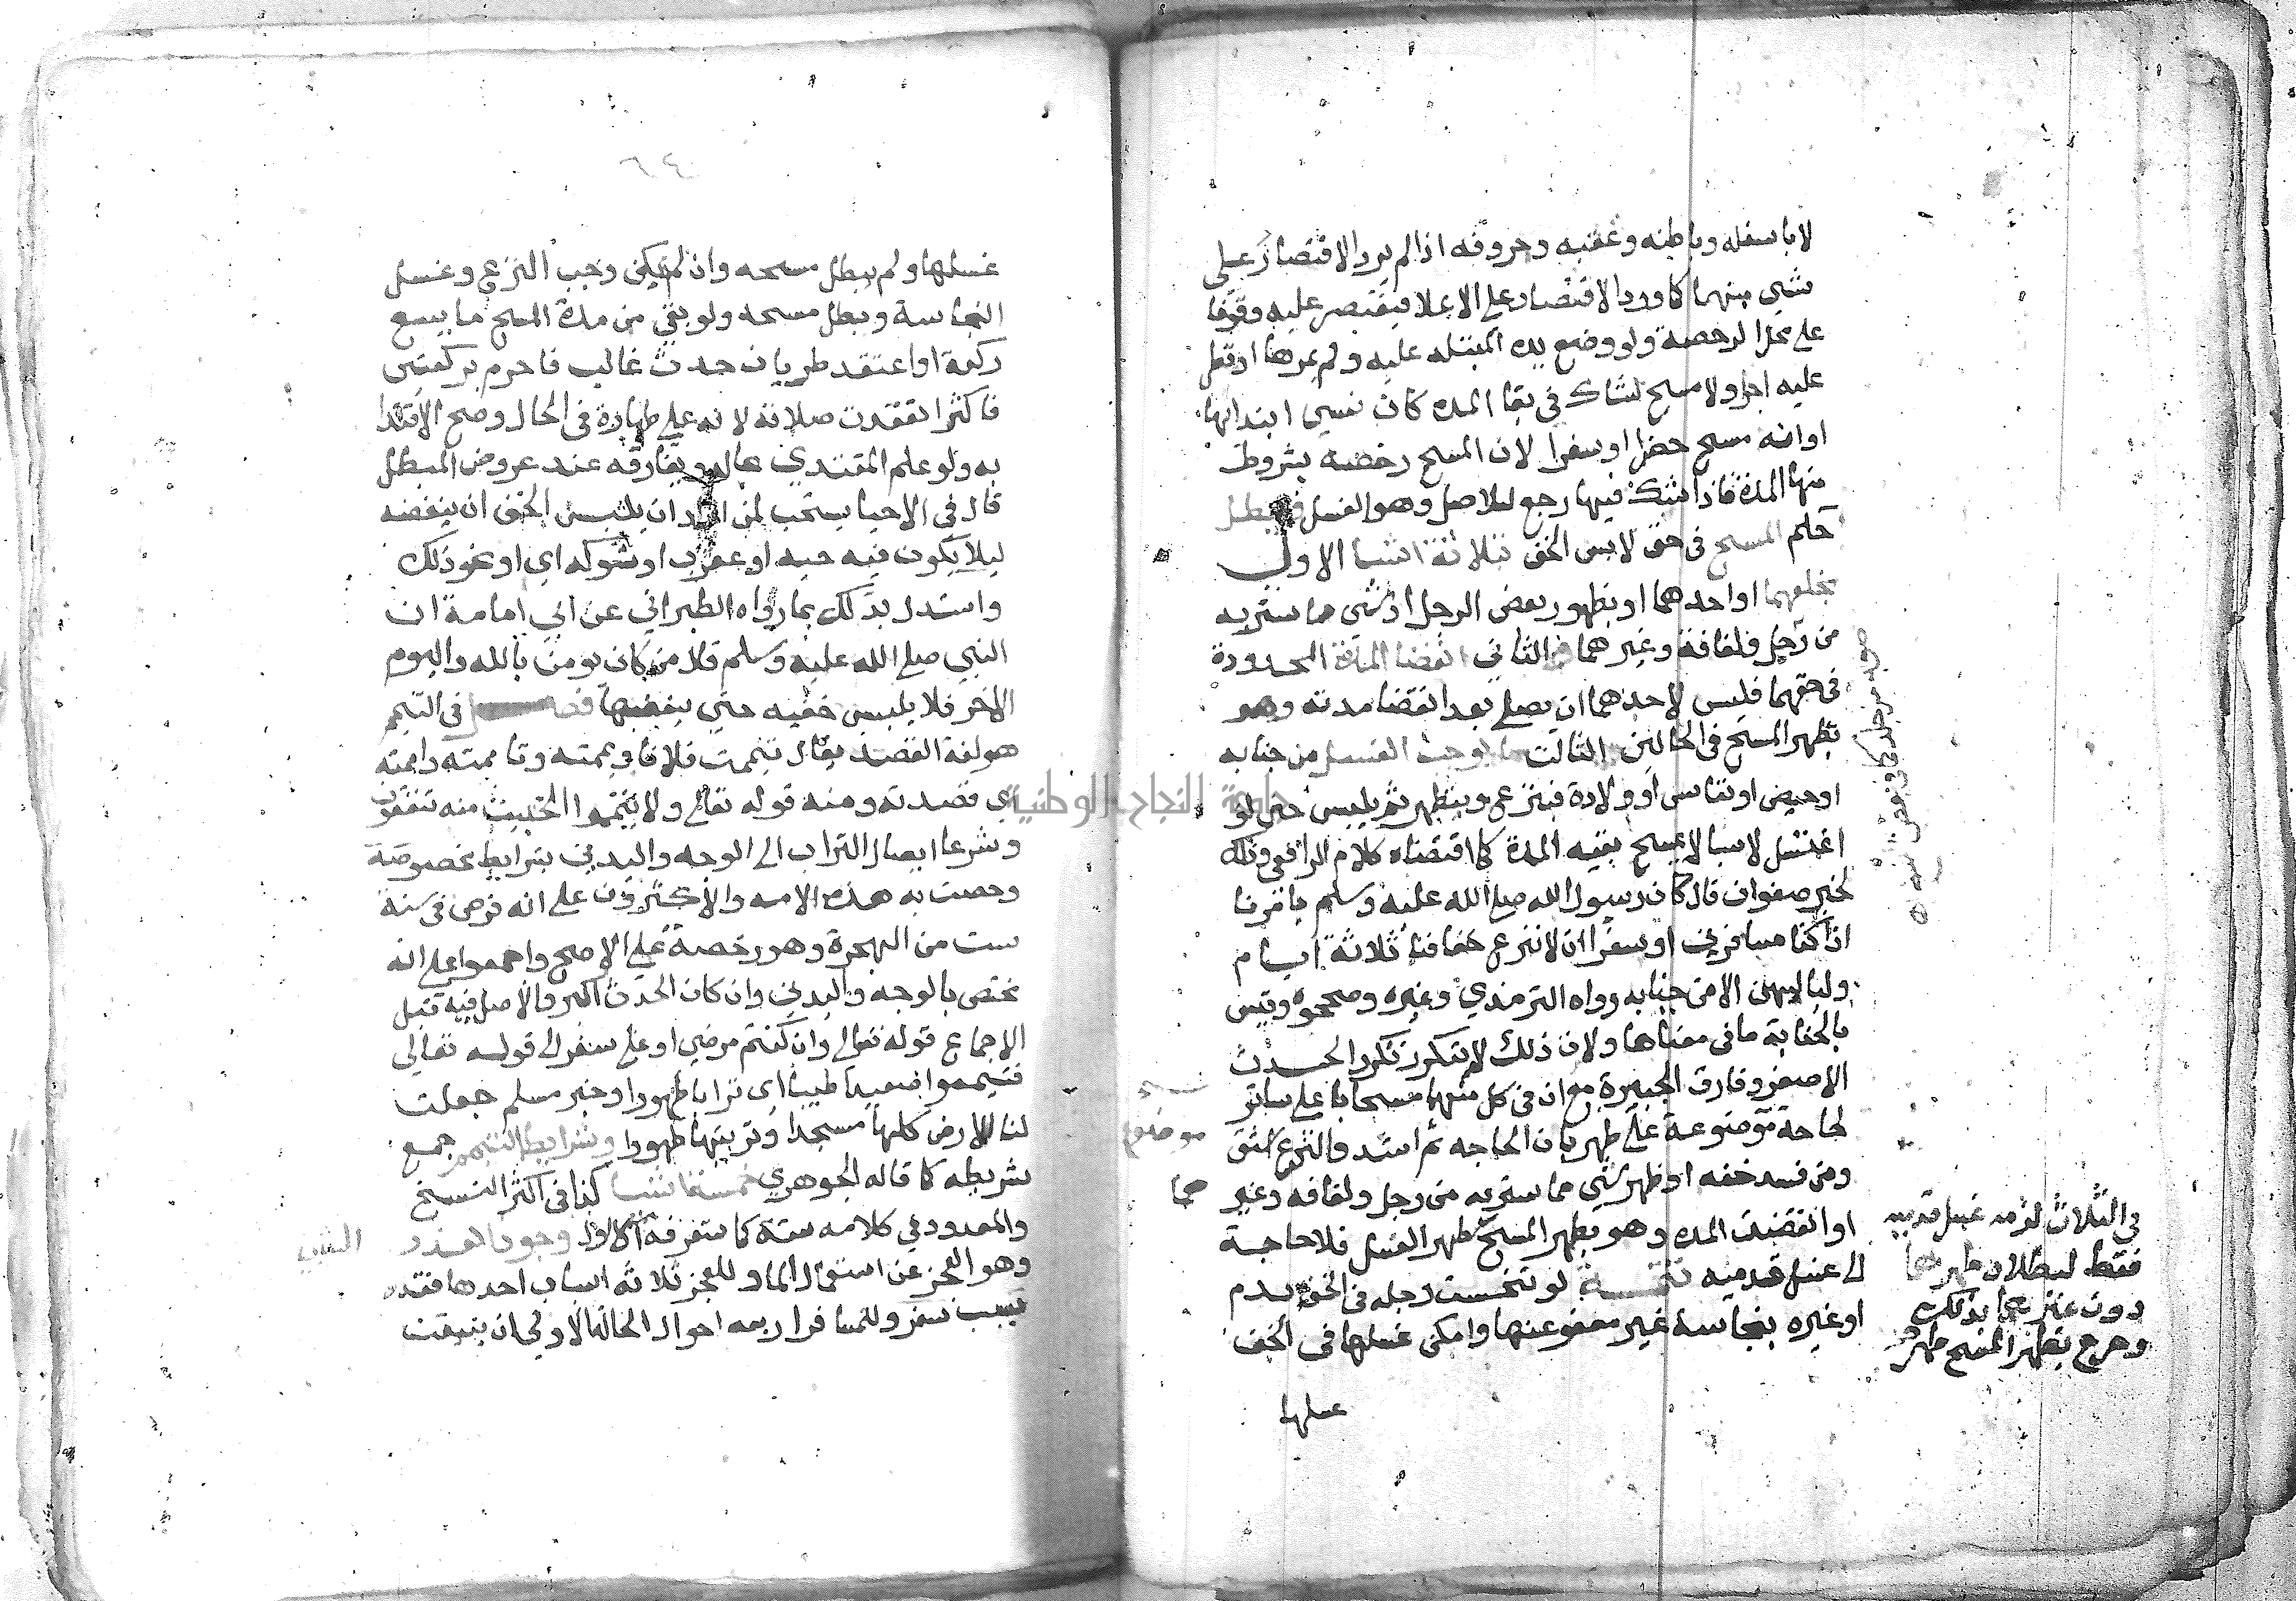 لا باسفله وباطنه وعقبه وحروفه اذا لم يرد الاقتصار على
شي منهما كما ورد الاقتصار على الاعلا فيقتصر عليه وقوفا
على محل الرخصة ولو وضع يده المبتله عليه ولم يمرها او قطر
عليه اجزا ولا مسح لشاك في بقا المده كان نسي ابتداها
او انه مسح حضرا او سفرا لان المسح رخصه بشروط
منها المدة فاذا شك فيها رجع للاصل وهو الغسل ويبطل
حكم المسح في حق لابس الخف بثلاثة اشيا الاول
بخلعهما او احدهما او بظهور بعض الرجل او شي مما ستر به
من رجل ولفافة وغيرهما والثاني انقضا المدة المحدودة
في حقهما فليس لاحدهما ان يصلي بعد انقضا مدته وهو
بطهر المسح في الحالين الثالث ما يوجب الغسل من جنابه
او حيض او نفاس او ولادة فينزع ويتطهر ثم يلبس حتى لو
اغتسل لابسا لا يمسح بقيه المدة كما اقتضاه كلام الرافعي وذلك
لخبر صفوان قال كان رسول الله صلى الله عليه وسلم يامرنا
اذا كنا مسافرين او سفرا ان لا ننزع خفافنا ثلاثة ايام
ولياليهن الا من جنابه رواه الترمذي وغيره وصححوه وقيس
بالجنابة ما في معناها ولان ذلك لا يتكرر تكرر الحدث
الاصغر وفارق الجبيرة مع ان في كل منهما مسحا باعلى ساتر
لحاجة موضوعة على طهر بان الحاجه ثم اشد والنزع اشق
ومن فسد خفه او ظهر شي مما ستر به من رجل ولفافه وغير
هما
او انقضت المده وهو بطهر المسح طهر الغسل فلا حاجة
الى غسل قدميه تتمـة لو تنجست رجله في الخف بدم
او غيره بنجاسة غير معفو عنها وامكن غسلها في الخف
غسلها
موضوع
في الثلاث لزمه غسل قدميه
فقط لبطلان طهرهما
دون غيرهما بذلك
وخرج بطهر المسح طهر
٦٤
غسلها ولم يبطل مسحه وان لم يمكن وجب النزع وغسل
النجاسة وبطل مسحه ولو بقي من مدة المسح ما يسع
ركعة او اعتقد طريان حدث غالب فاحرم بركعتين
فاكثر انعقدت صلاته لانه على طهارة في الحال وصح الاقتدا
به ولو علم المقتدي بحاله ويفارقه عند عروض المبطل
قال في الاحيا يستحب لمن اراد ان يلبس الخف ان ينفضه
ليلا يكون فيه حيه او عقرب او شوكه اي او نحو ذلك
واستدل بذلك بما رواه الطبراني عن ابي امامة ان
النبي صلى الله عليه وسلم قال من كان يومن بالله واليوم
الاخر فلا يلبس خفيه حتى ينفضهما فصـل في التيمم
هو لغة القصد يقال تيممت فلانا ويممته وتاممته واممته
اي قصدته ومنه قوله تعالى ولا تيمموا الخبيث منه تنفقون
وشرعا ايصال التراب الى الوجه واليدين بشرايط مخصوصة
وخصت به هذه الامه والاكثرون على انه فرض في سنة
ست من الهجرة وهو رخصة على الاصح واجمعوا على انه
مختص بالوجه واليدين وان كان الحدث اكبر والاصل فيه قبل
الاجماع قوله تعالى وان كنتم مرضى او على سفر الى قوله تعالى
فتيمموا صعيدا طيبا اي ترابا طهورا وخبر مسلم جعلت
لنا الارض كلها مسجدا وتربتها طهورا وشرايط التيمم جمع
شريطه كما قاله الجوهري خمسة اشيا كذا في اكثر النسخ
والمعدود في كلامه ستة كما ستعرفه الاول وجود العذر
وهو العجز عن استعمال الما وللعجز ثلاثه اسباب احدها فقده
بسبب سفر وللمسافر اربعه احوال الحالة الاولى ان يتيقن